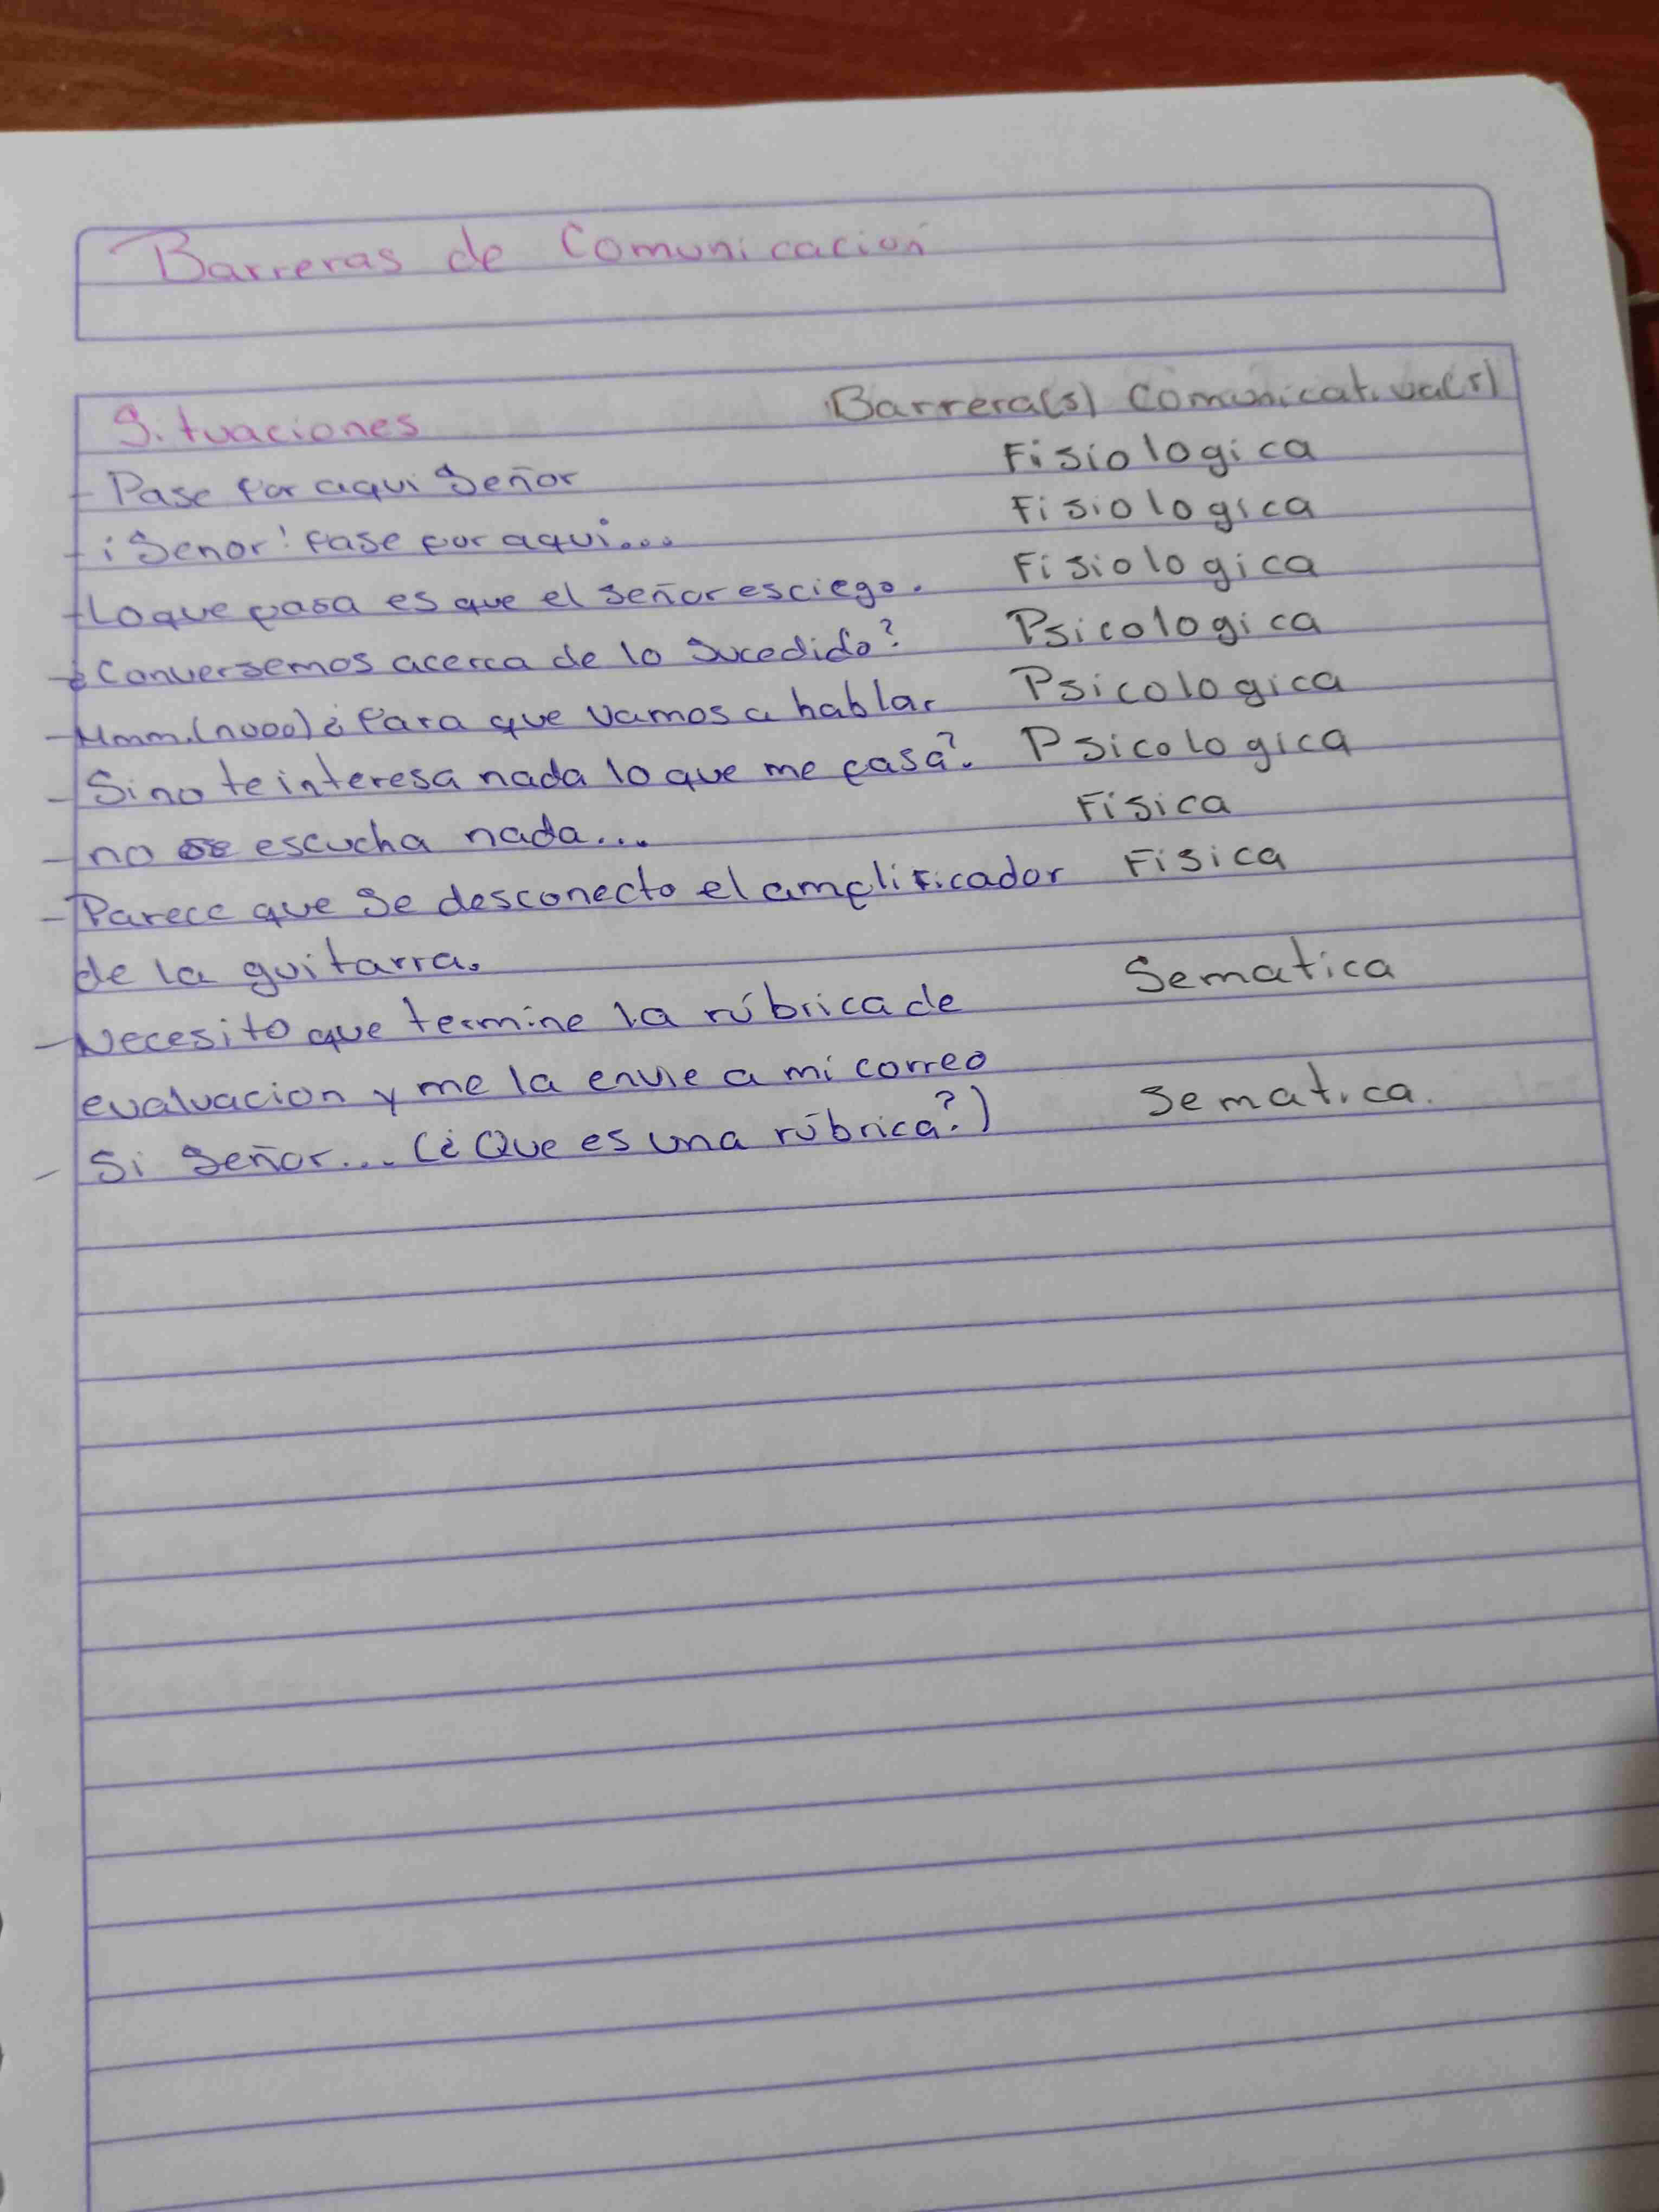 Barreras de Comunicación
Situaciones Barrera(s) Comunicativa(s)
- Pase por aqui Señor Fisiologica
- ¡Senor! Pase por aqui... Fisiologica
- Lo que pasa es que el señor es ciego. Fisiologica
- ¿Conversemos acerca de lo Sucedido? Psicologica
- Hmm.(nooo) ¿Para que vamos a hablar Psicologica
- Si no te interesa nada lo que me pasa?. Psicologica
- no se escucha nada... Fisica
- Parece que Se desconecto el amplificador Fisica
de la guitarra.
- Necesito que termine la rúbrica de Sematica
evaluacion y me la envie a mi correo
- Si Señor... (¿Que es una rúbrica?) Sematica.